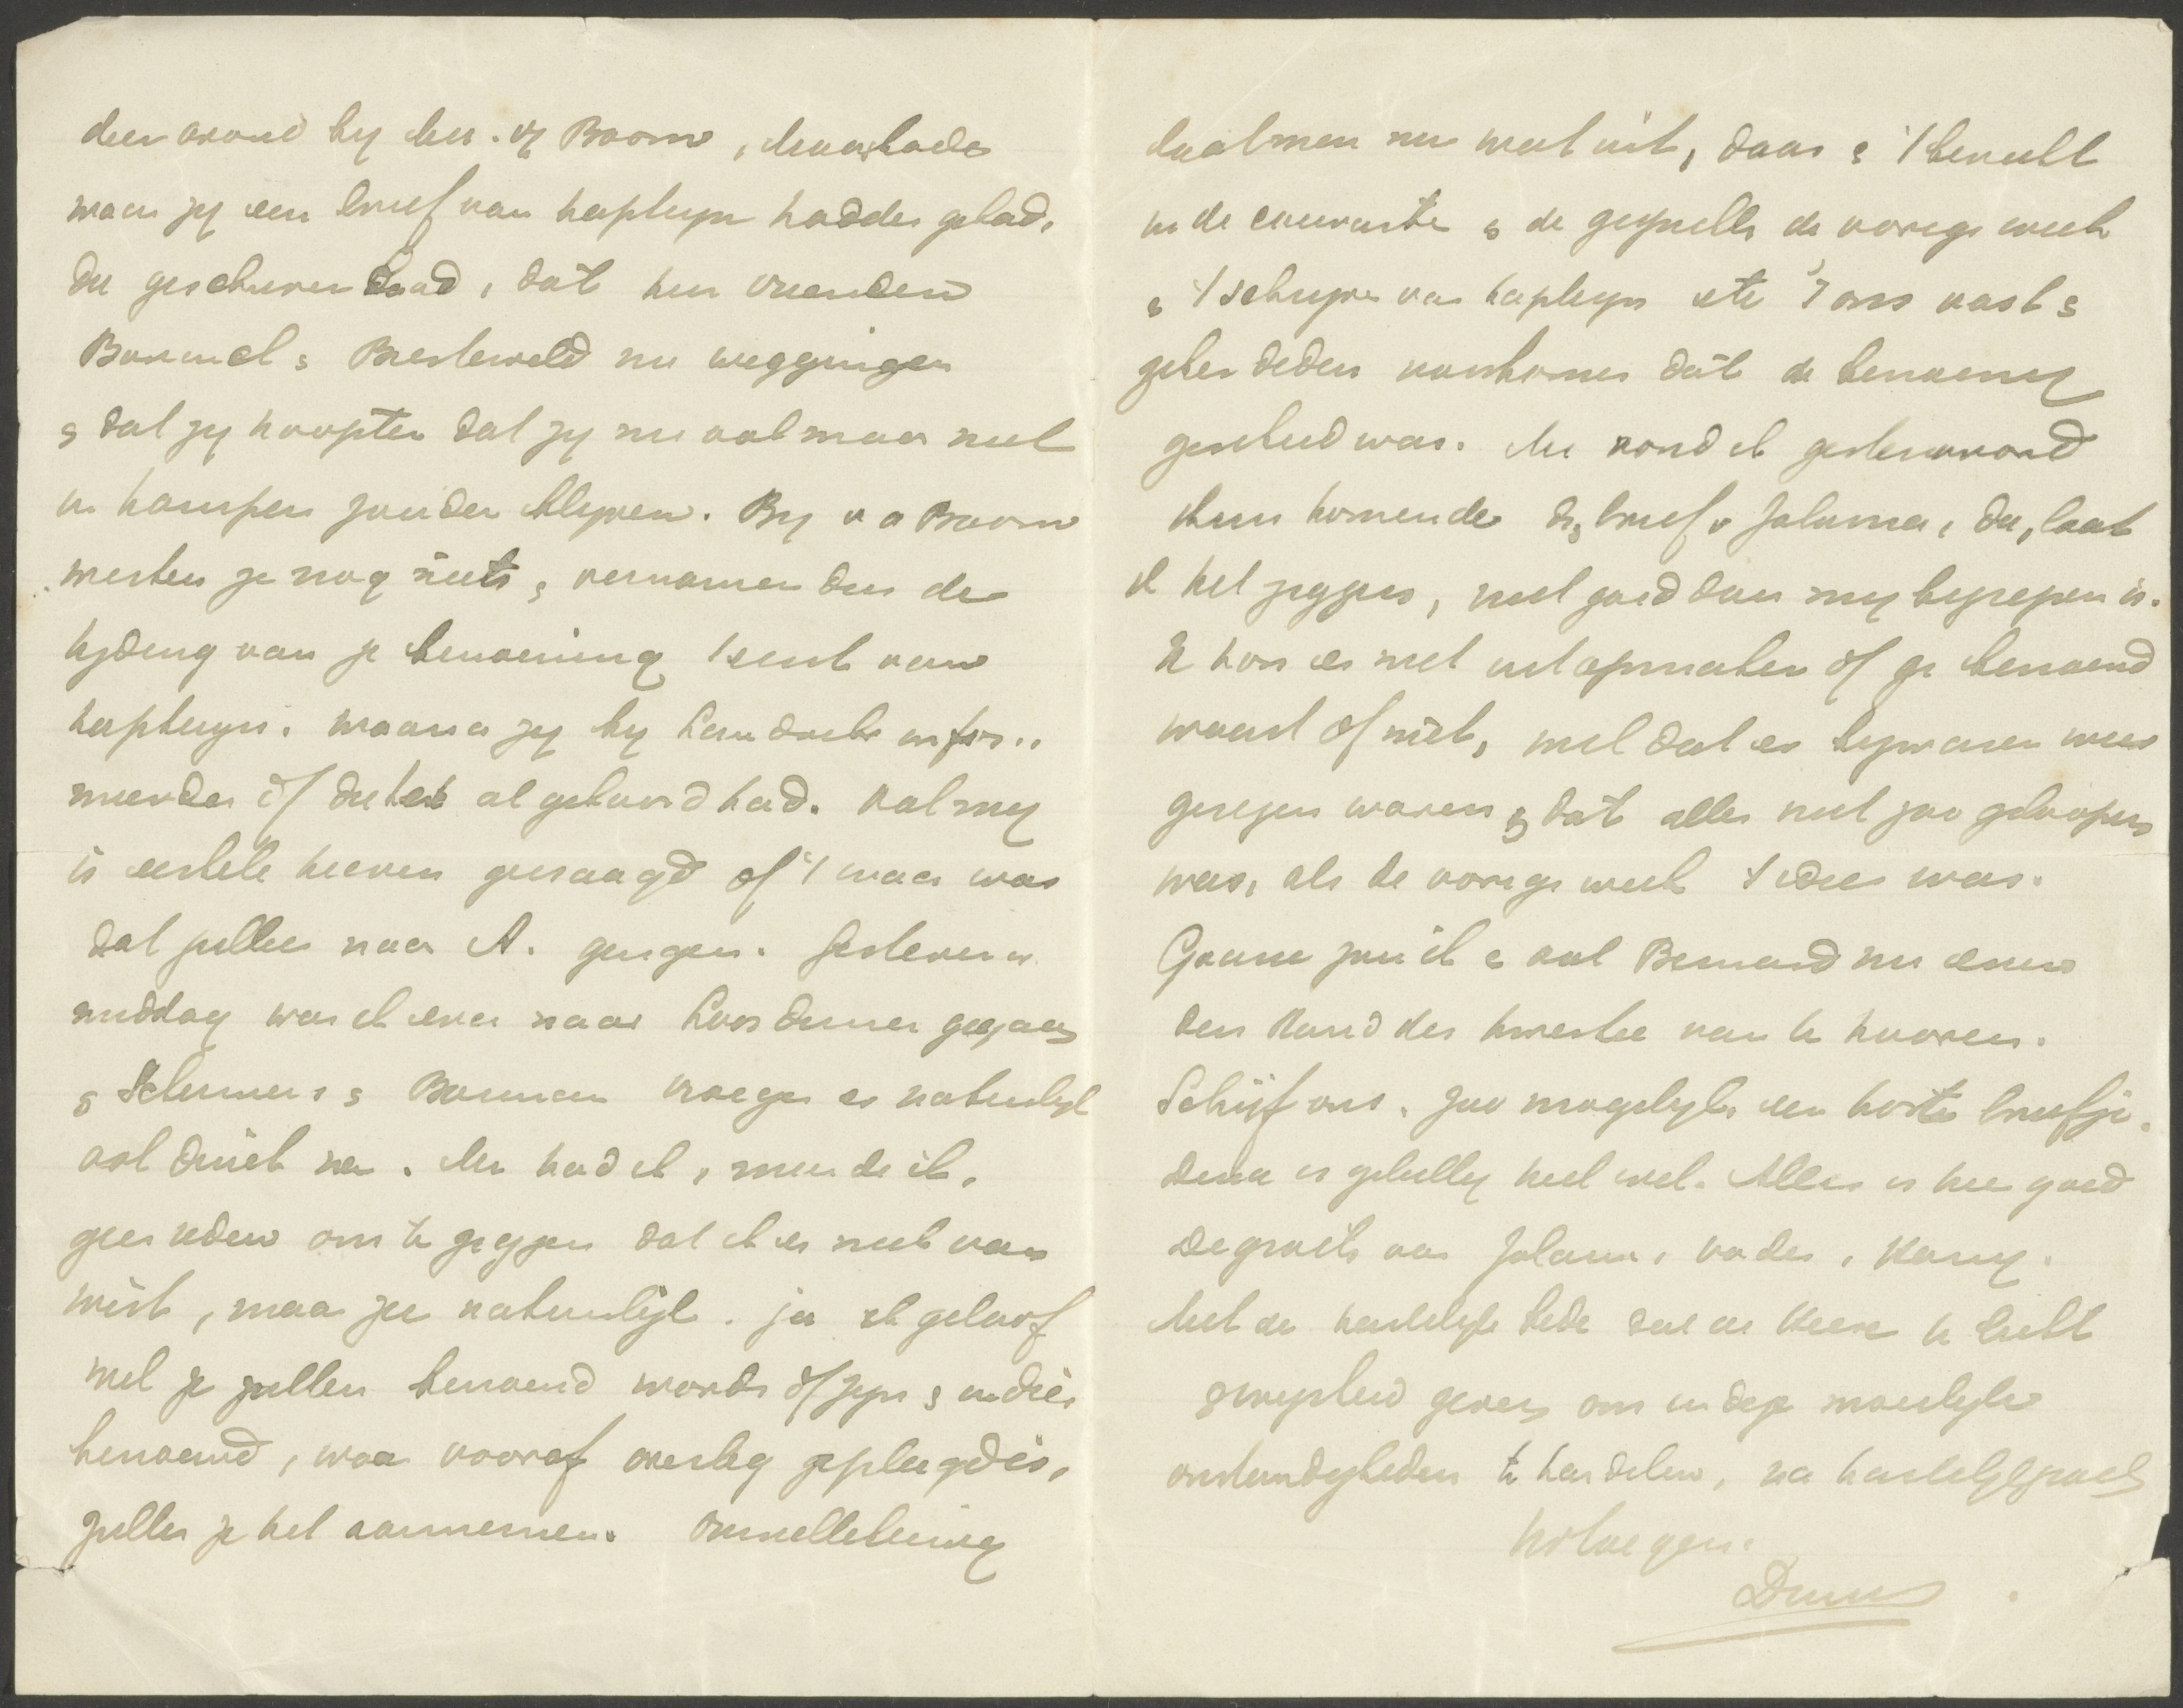 deen avond by Mr. v/d Boom,
waar zy een brief van Kapteyn hadden gehad,
die geschreven had, dat hun vrienden
Bavinck & Biesterveld nu weggingen
& dat zy hoopten dat zy nu ook maar niet
in Kampen zouden blyven. By v d Boom
wisten ze nog niets & vernamen dus de
tyding van je benoeming 't eerst van
Kapteyn. Waarna zy by infor-
meerden of die het al gehoord had. Ook my
is eenige keeren gevraagd of 't waar was
dat jullie naar A. gingen. Gisteren
middag was ik even naar gegaan
& & Bouman vroegen er natuurlyk
ook druk na. Nu had ik, meende ik,
geen reden om te zeggen dat ik er niet van
wist, maar zei natuurlyk. ja ik geloof
wel ze zullen benoemd worden of zyn & indien
benoemd, waar vooraf overleg gepleegd is,
zullen ze het aannemen.
laat men nu wel uit, daar & 't bericht
in de couranten & de gesprekken de vorige week
& 't schryven van Kapteyn etc 't ons vast &
zeker deden voorkomen dat de benoeming
geschied was. Nu vond ik gisteravond
thuis komende de brief v Johanna, die, laat
ik het zeggen, niet goed door my begrepen is.
Ik kon er niet uit opmaken of ge benoemd
waart of niet, wel dat er bezwaren weer
gerezen waren & dat alles niet zoo geloopen
was, als de vorige week 't idee was.
Gaarne zou ik & ook Bernard nu eens
den stand der kwestie van U hooren.
Schrijf ons, zoo mogelyk een kort briefje.
Dena is gelukkig heel wel. Alles is hier goed
De groete van Johan, vader,
Met de hartelyke bede dat de Heere U licht
& wysheid geven om in deze moeilyke
omstandigheden te handelen, na hartelyk groet
Uw toegen.